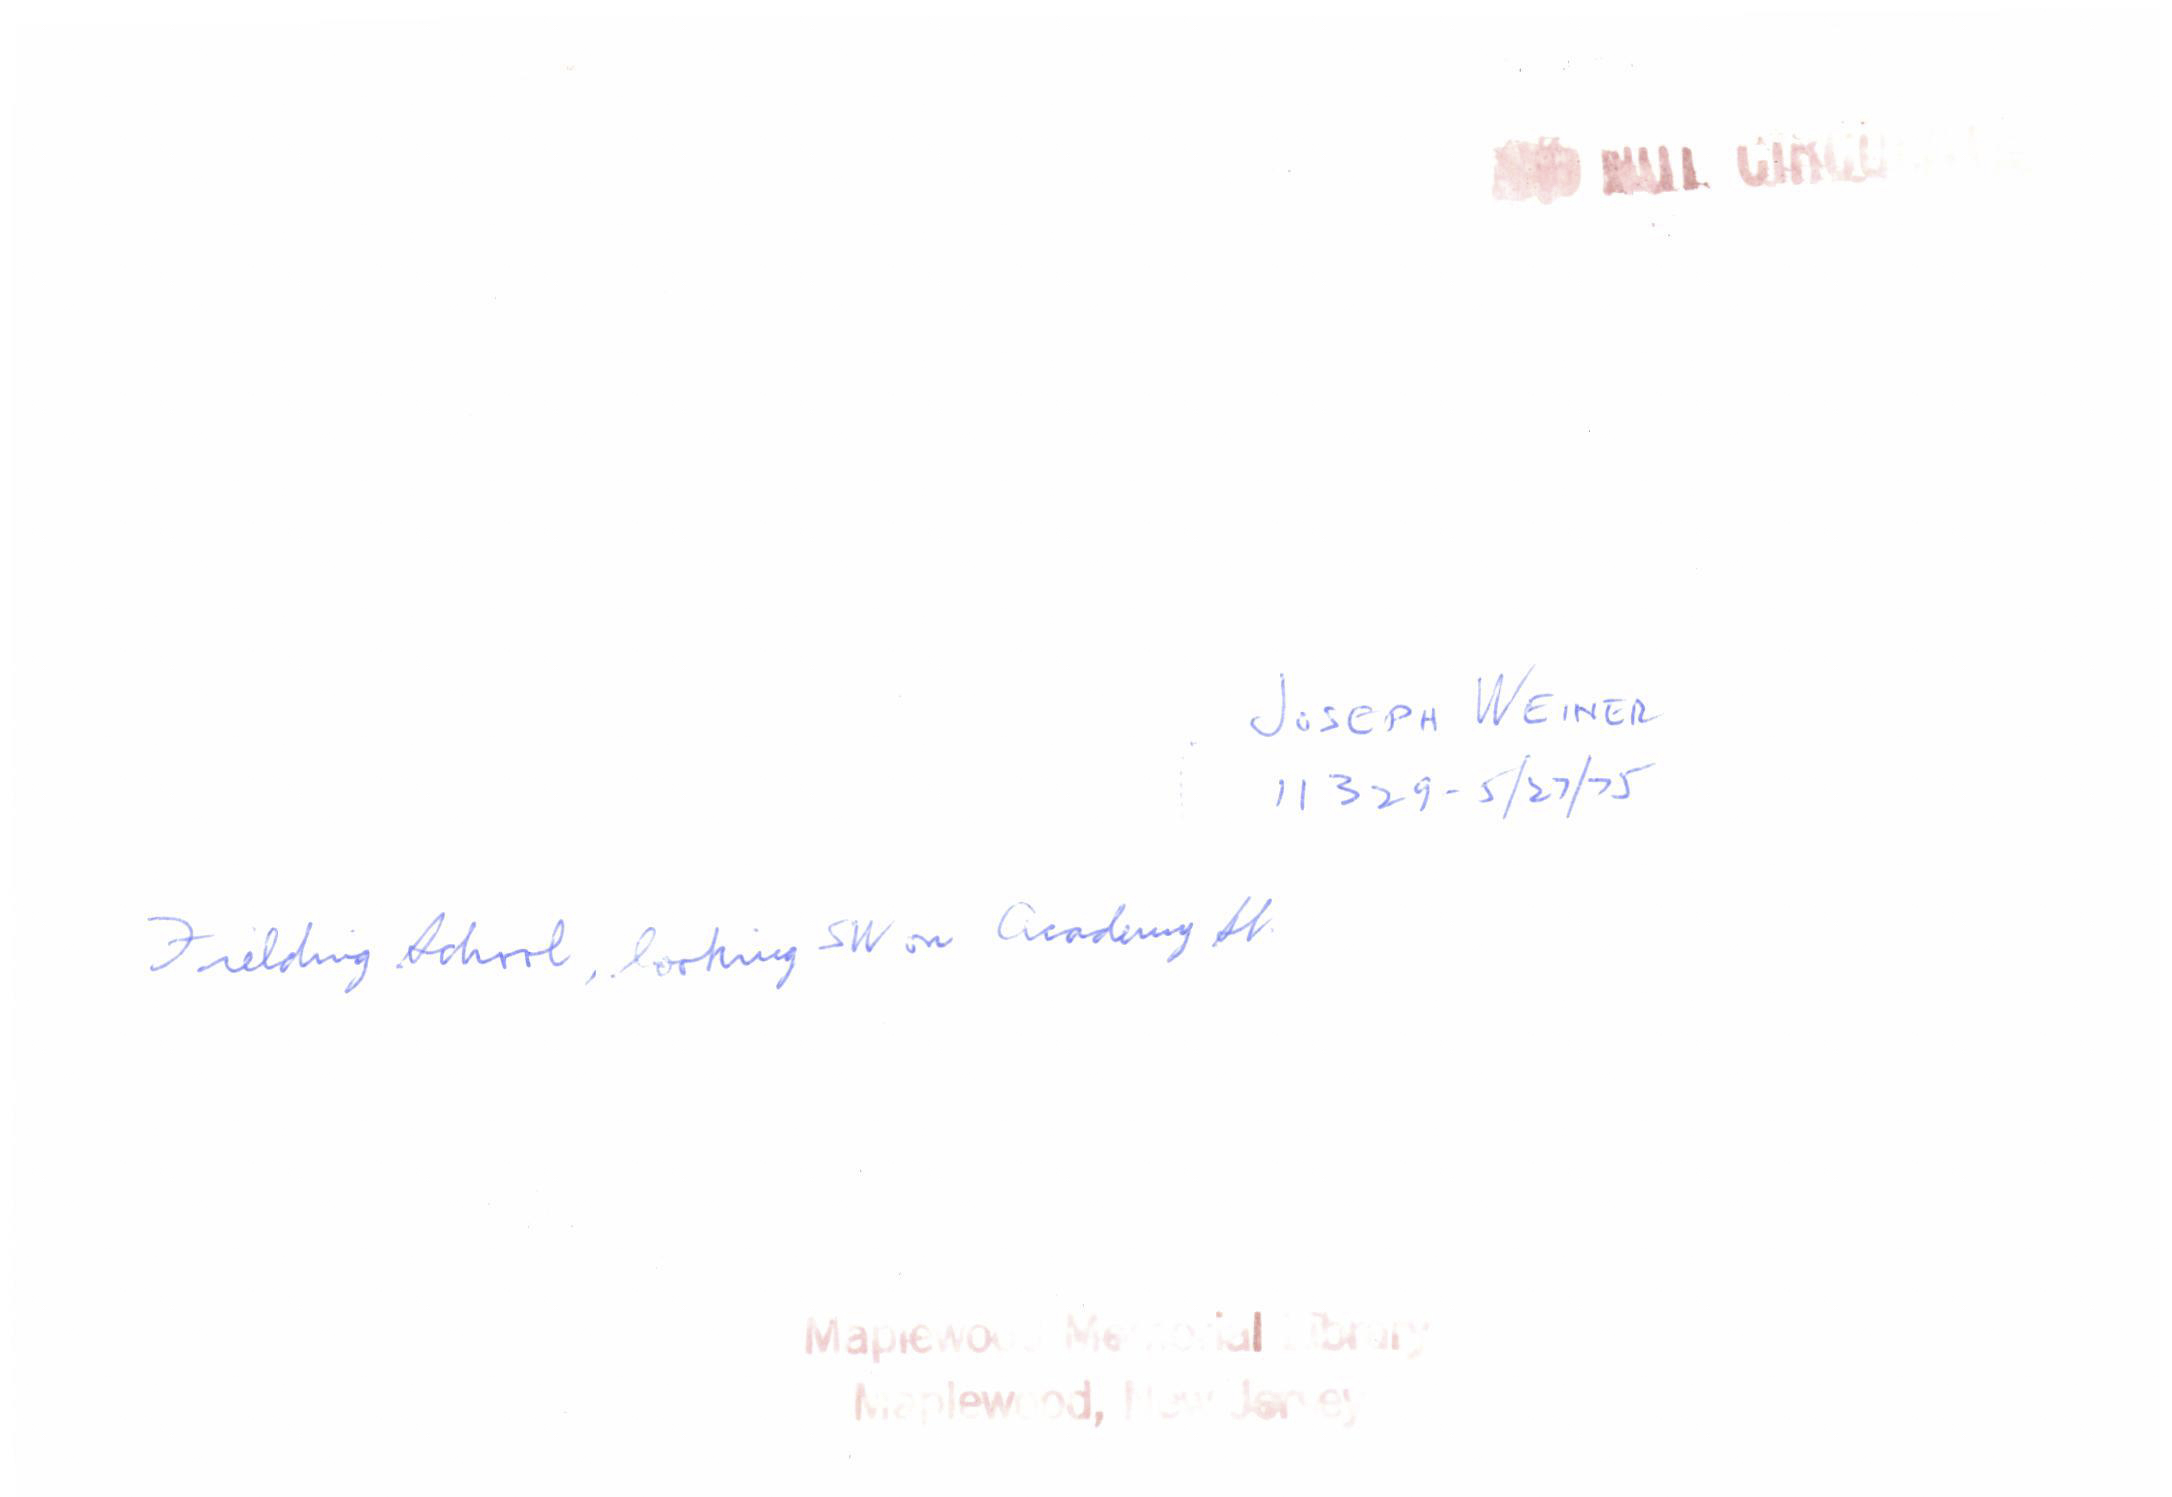 JOSEPH WEINER
11329 - 5/27/75
Fielding School, looking SW on Academy St.
Maplewood Memorial Library
Maplewood, New Jersey